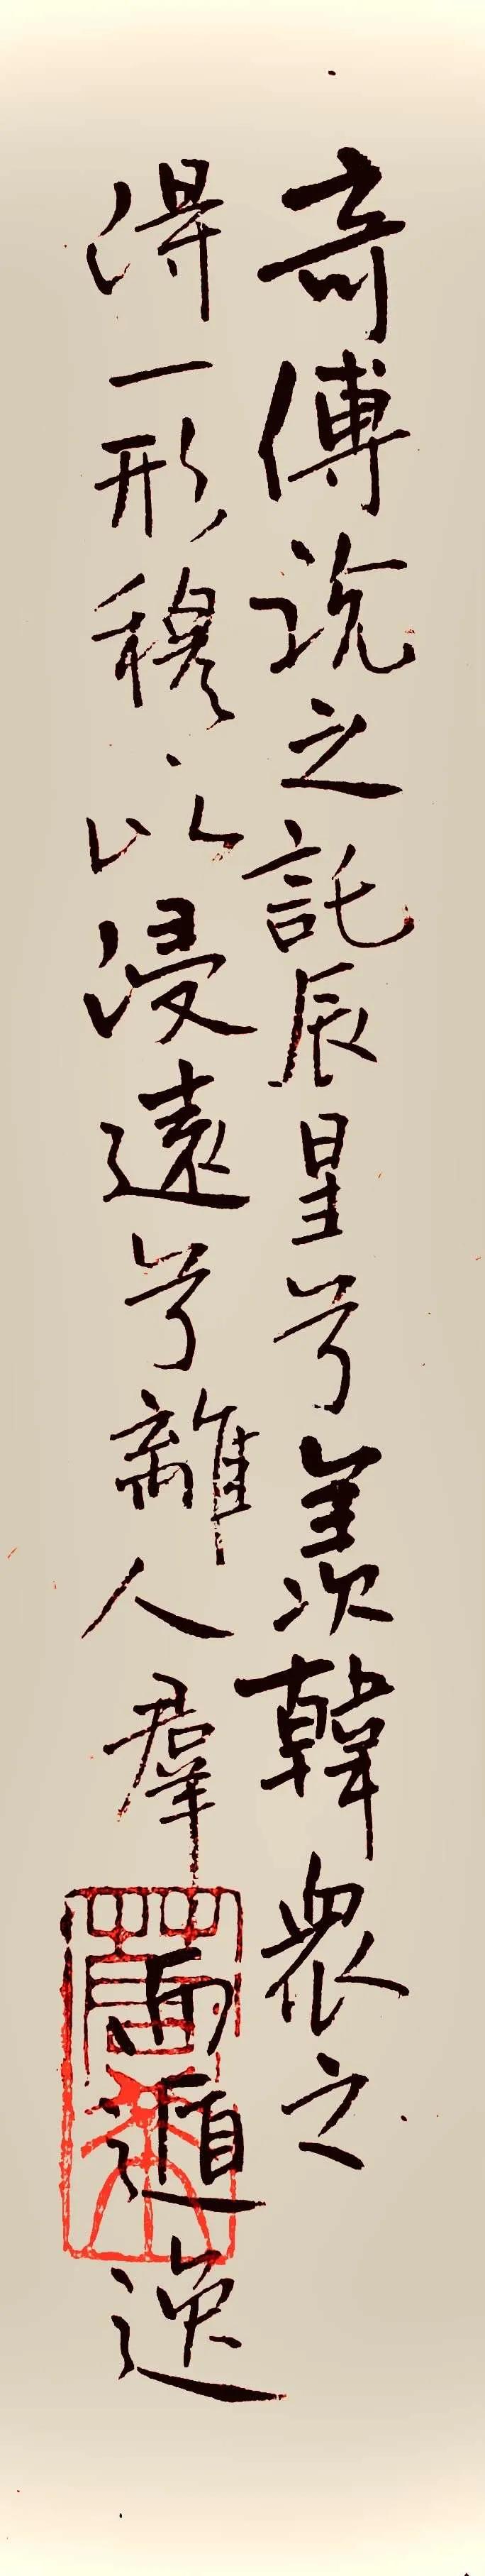 奇傅說之託辰星兮羨韓衆之
得一形穆以浸遠兮離人羣而遁逸